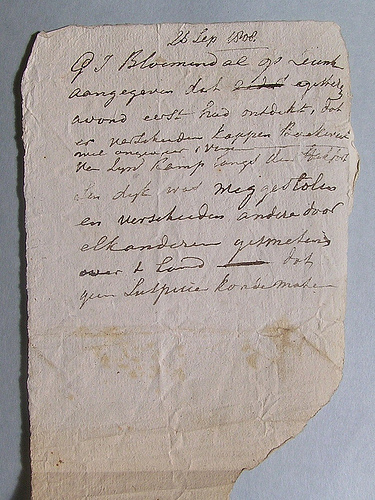 26 Sep 1808
G J Bloemendal op
aangegeven dat
avond eerst had ontdekt, dat
er verscheiden kappen Boekweit
met
van zyn Kamp langs den
den dyk was weggestolen
en verscheiden andere door
elkanderen gesmeten
over t land dat
geen Suspicie konde maken